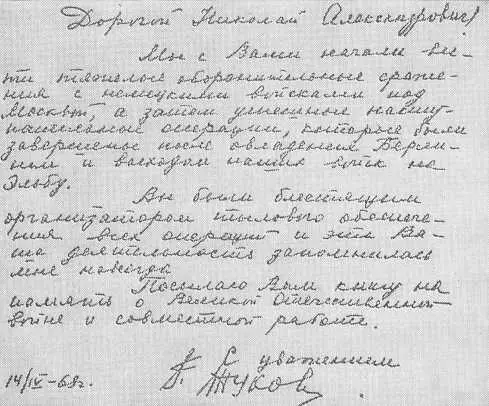 Дорогой Николай Александрович!
Мы с Вами начали вес-
ти тяжелые оборонительные сраже-
ния с немецкими войсками под
Москвой, а затем успешные насту-
пательные операции, которые были
завершены после овладения Берли-
ном и выходом наших войск на
Эльбу.
Вы были блестящим
организатором тылового обеспече-
ния всех операций и эта Ва-
ша деятельность запомнилась
мне навсегда
Посылаю Вам книгу на
память о Великой Отечественной
войне и совместной работе.
С уважением
Г. Жуков
14/IV-68г.